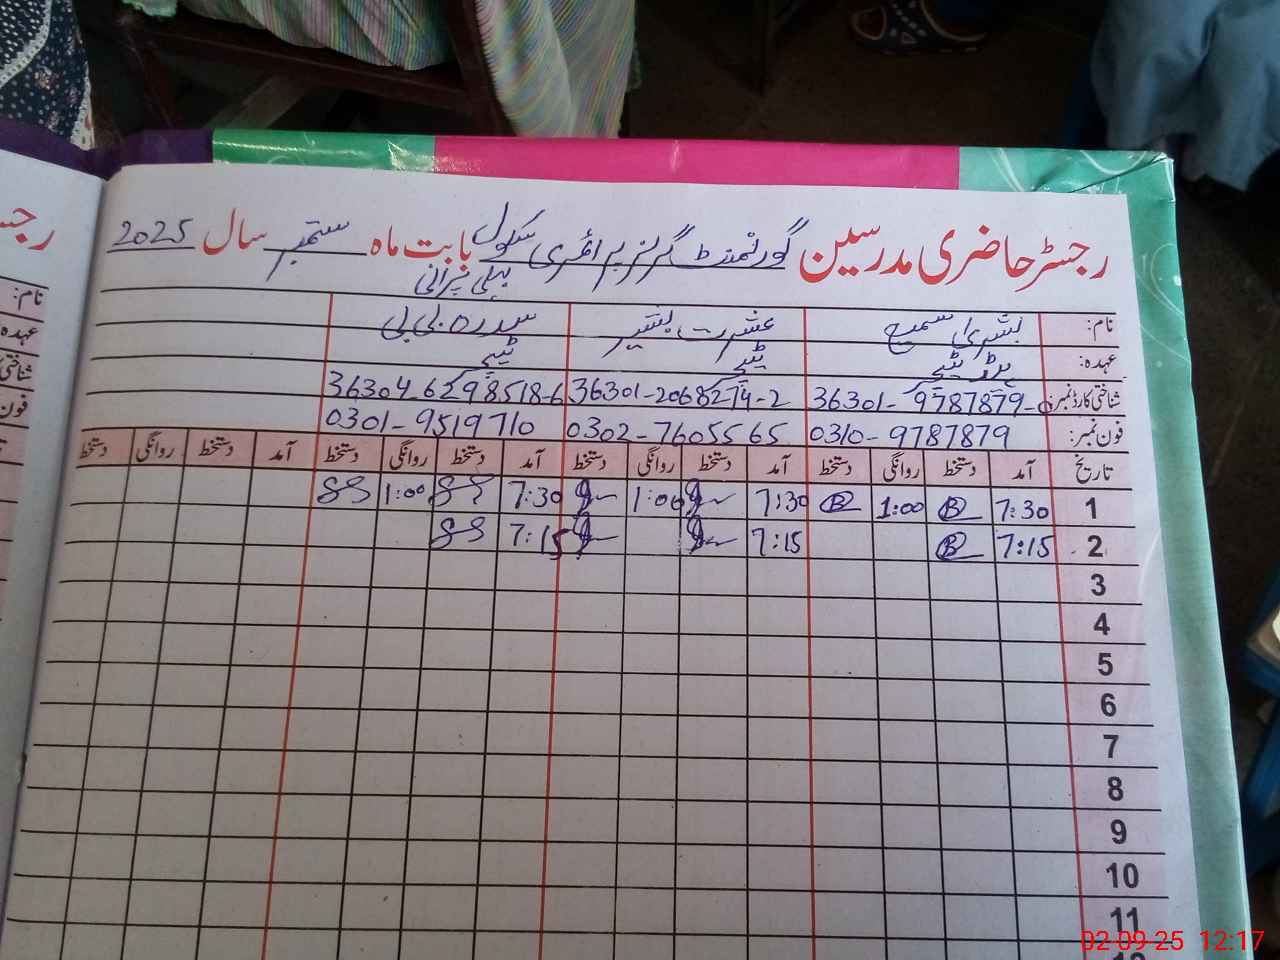 رجسٹر حاضری مدرسین گورنمنٹ گرلز پرائمری سکول بابت ماہ ستمبر سال 2025
نام: بشریٰ سمیع عشرت بشیر سدرہ بی بی
عہدہ: ہیڈ ٹیچر ٹیچر ٹیچر
شناختی کارڈ نمبر 36301-9787879-0 36301-2068274-2 36304-6298518-6
فون نمبر: 0310-9787879 0302-7605565 0301-9519710
تاریخ آمد دستخط روانگی دستخط آمد دستخط روانگی دستخط آمد دستخط روانگی دستخط آمد دستخط روانگی دستخط
1 7:30 1:00 7:30 1:00 7:30 1:00
2 7:15 7:15 7:15
3
4
5
6
7
8
9
10
11
نام:
عہدہ
شناختی
فون
02-09-25 12:17